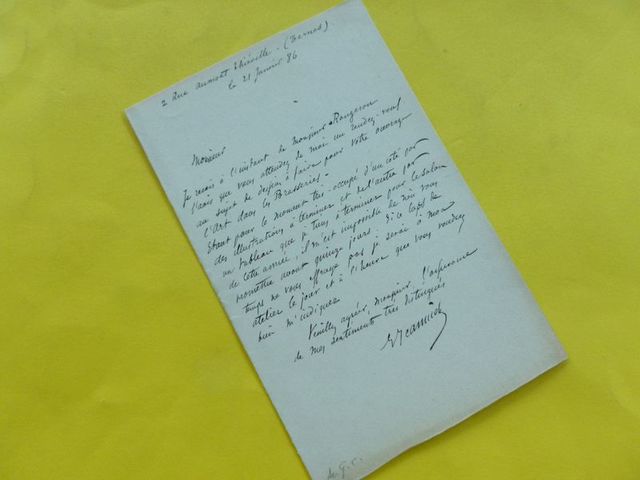 2 Rue Aumont Thiéville. (Ternes).
le 21 Janvier 86
Monsieur
Je reçois à l'instant de Monsieur Rougeron
l'avis que vous attendez de moi un rendez-vous
au sujet de dessins à faire pour votre ouvrage
l'Art dans les Brasseries.
Etant pour le moment très occupé d'un côté par
des illustrations à terminer et de l'autre par
un tableau que je tiens à terminer pour le Salon
de cette année, il m'est impossible de rien vous
promettre avant quinze jours. Si ce laps de
temps ne vous effraye pas je serai à mon
atelier le jour et à l'heure que vous voudrez
bien m'indiquer
Veuillez agréer, Monsieur, l'assurance
de mes sentiments très distingués
Jeanniot